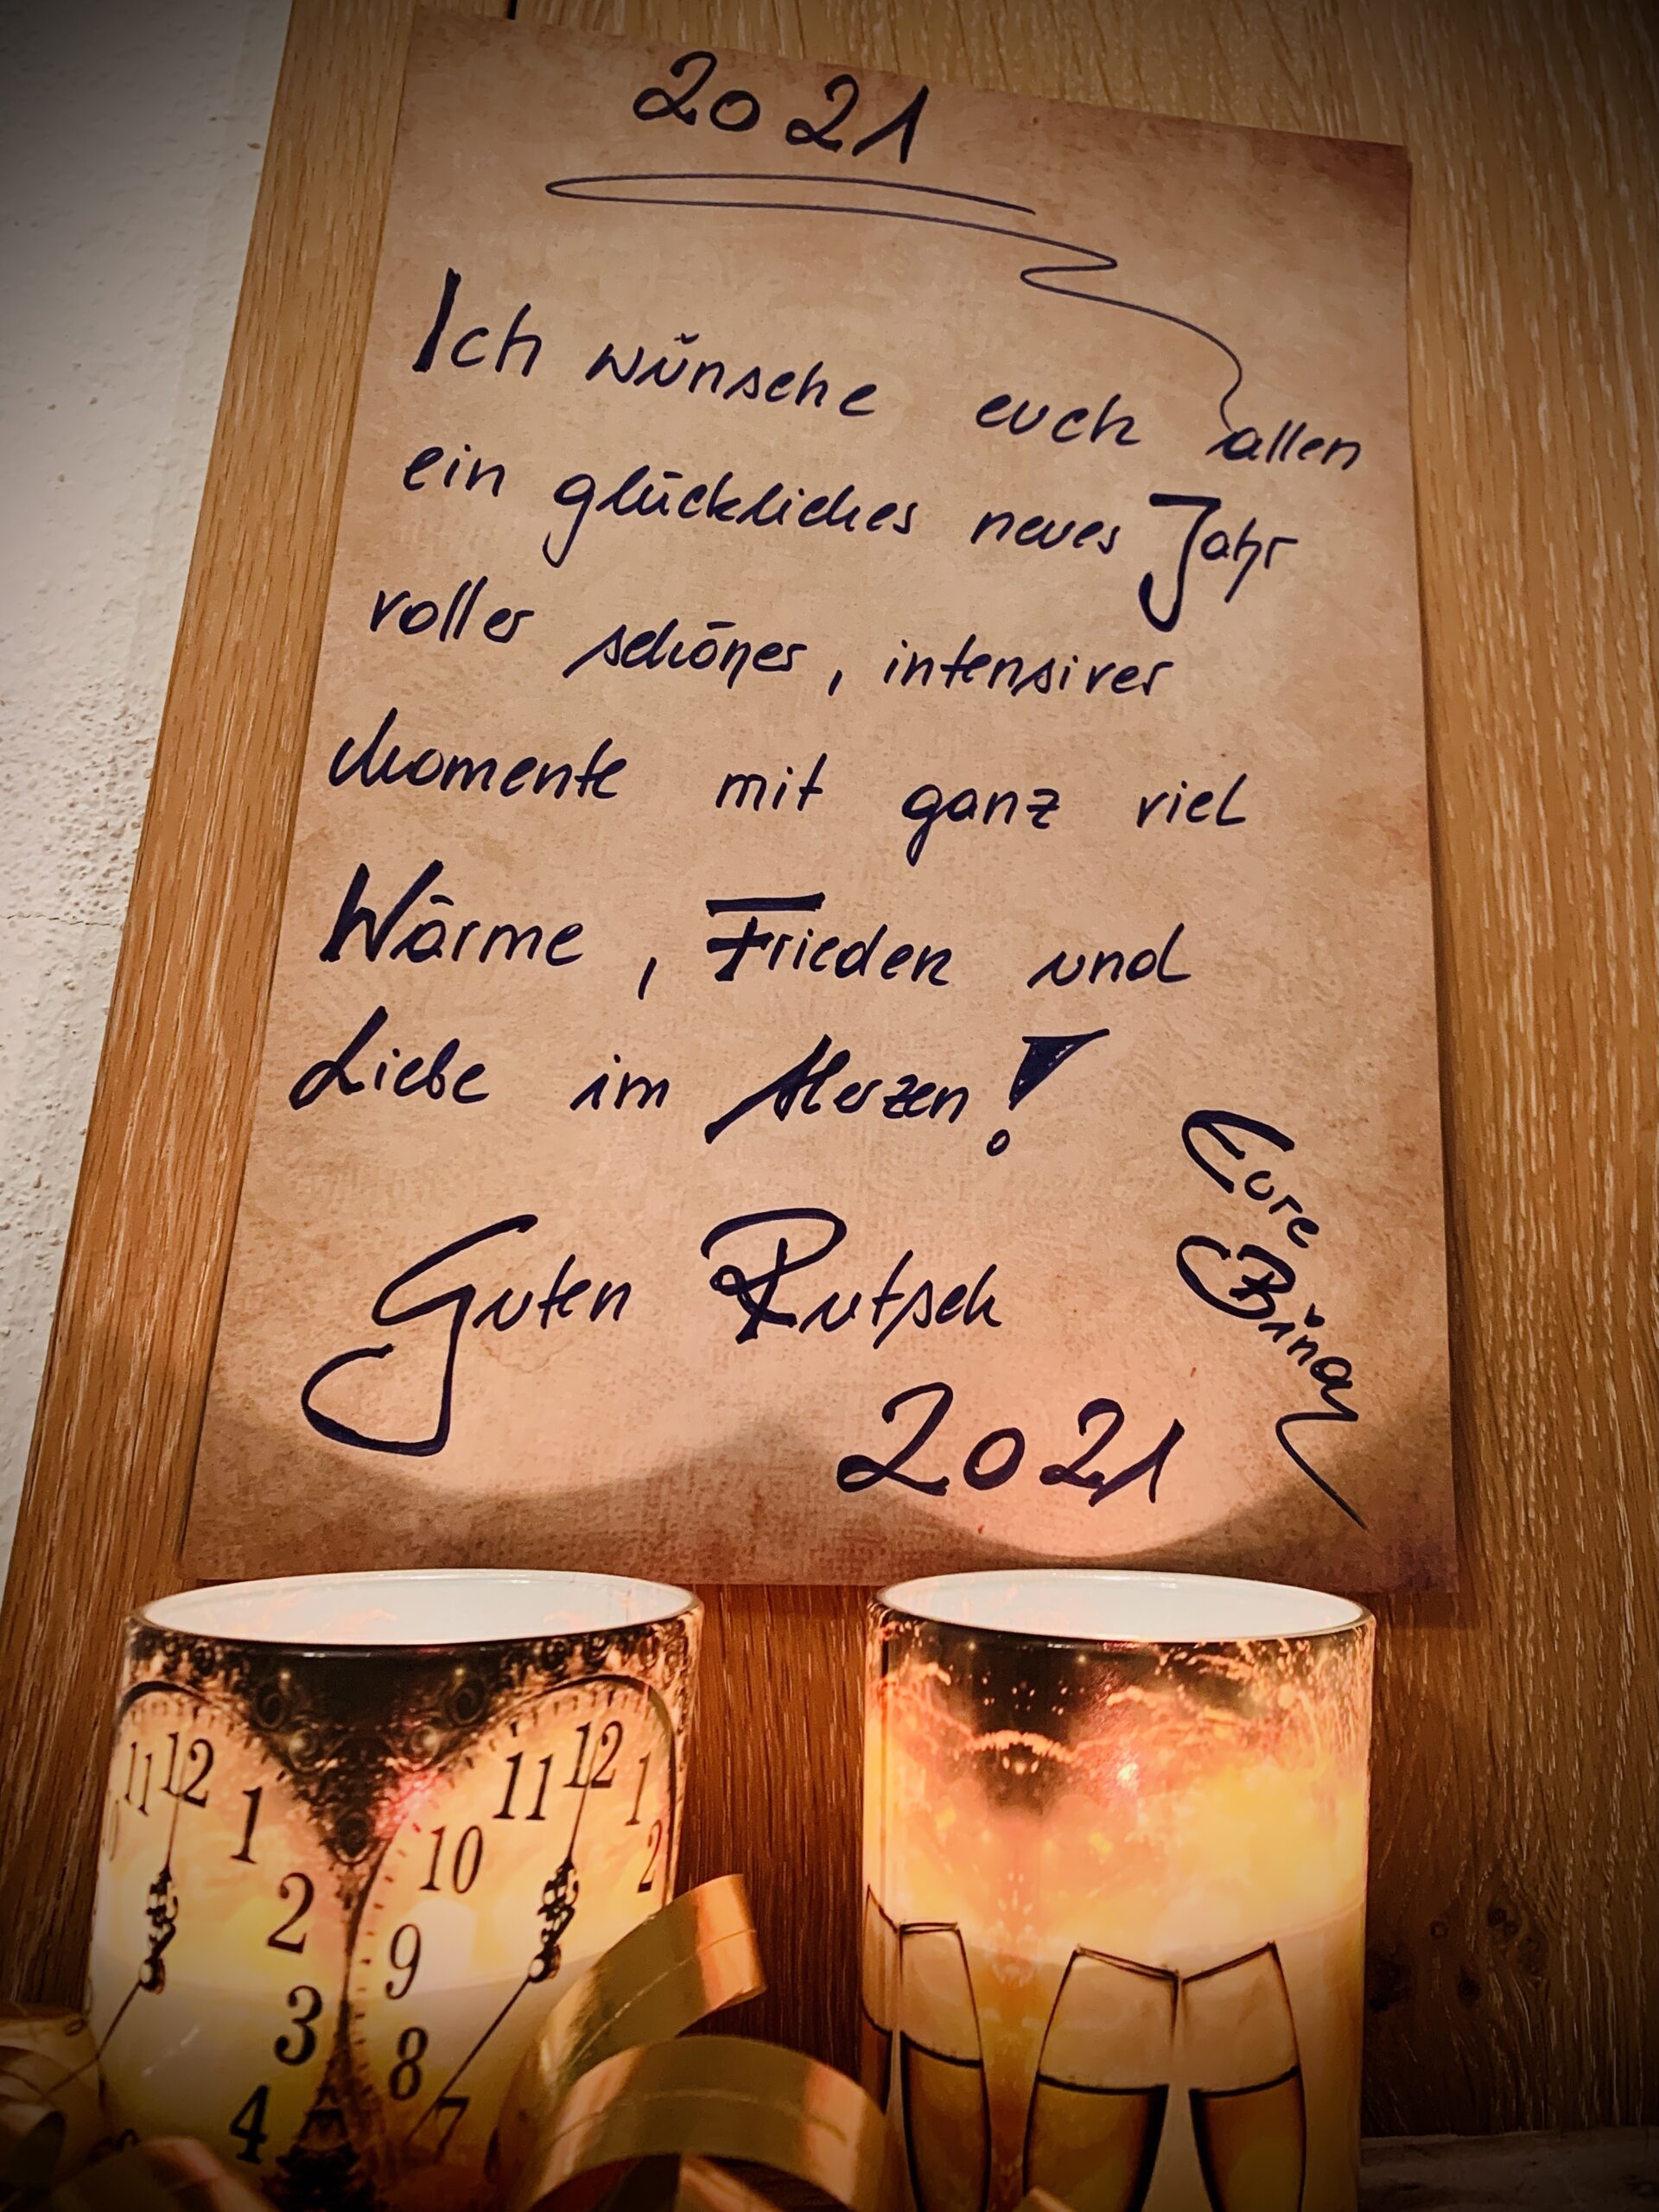 2021
Ich wünsche euch allen
ein glückliches neues Jahr
voller schöner, intensiver
Momente mit ganz viel
Wärme, Frieden und
Liebe im Herzen!
Eure
Guten Rutsch
2021
11 12 1 2 3 4
11 12 1 2
10 9 8 7